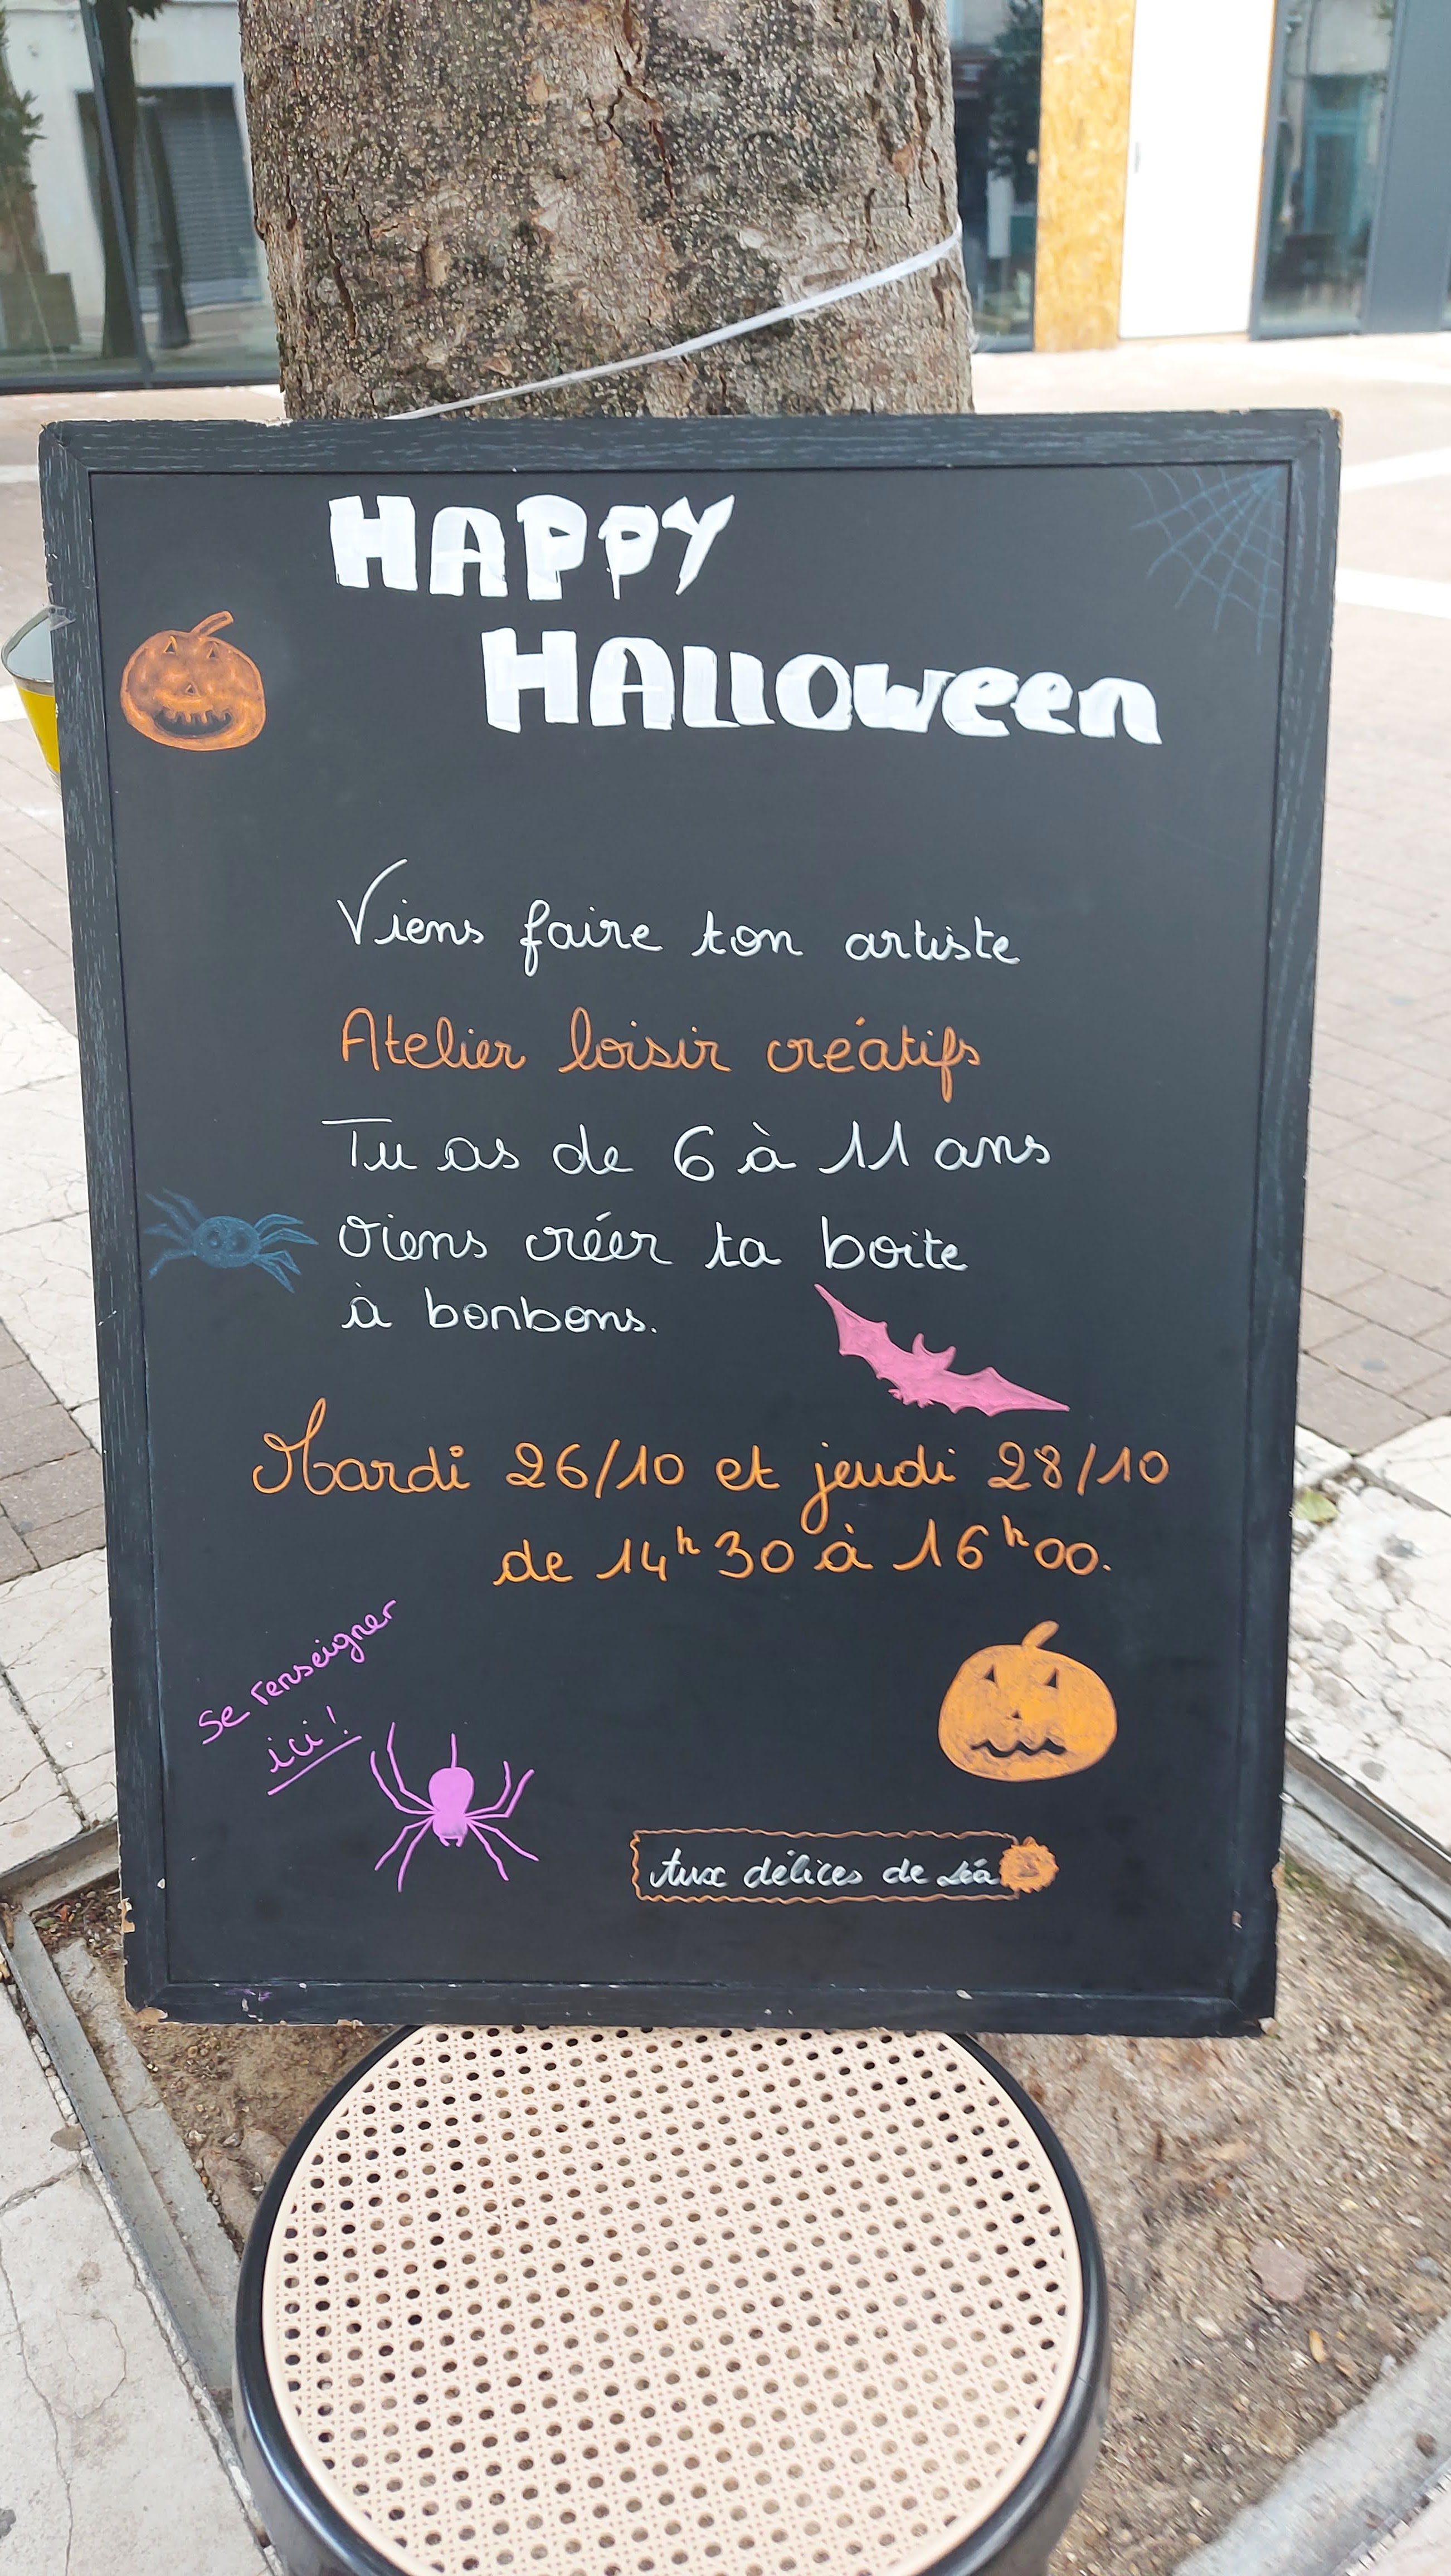 HAPPY
HALLOWEEN
Viens faire ton artiste
Atelier loisir créatifs
Tu as de 6 à 11 ans
viens créer ta boite
à bonbons.
Mardi 26/10 et jeudi 28/10
de 14h30 à 16h00.
Se renseigner
ici !
Aux délices de Léa